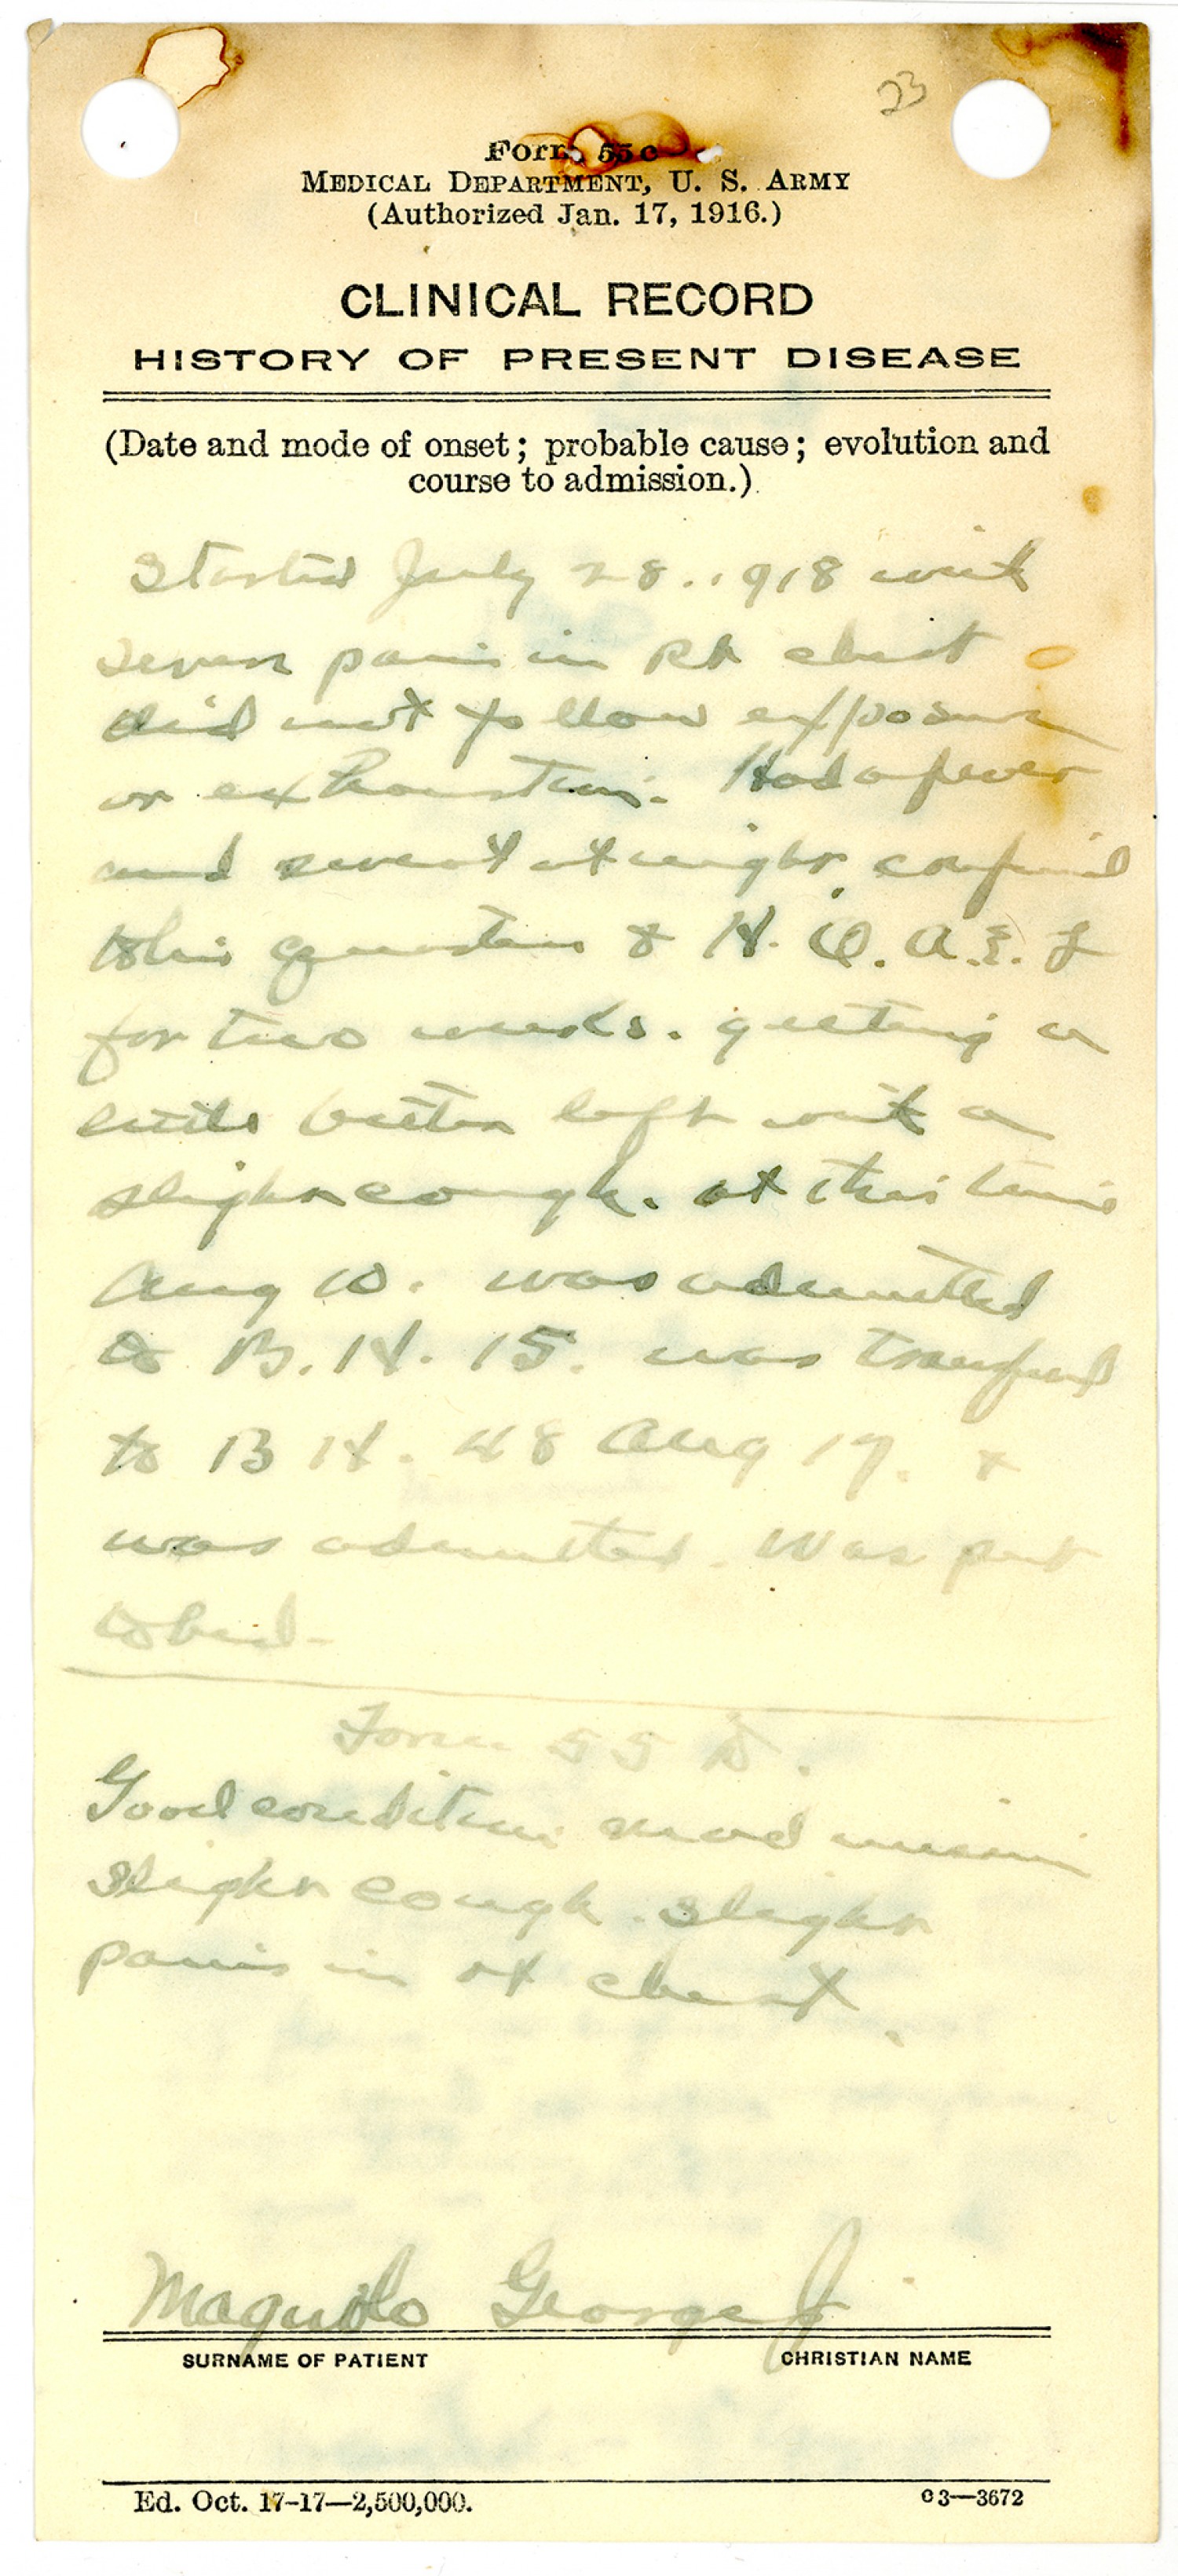 23
Form 55 c
MEDICAL DEPARTMENT, U. S. ARMY
(Authorized Jan. 17, 1916.)
CLINICAL RECORD
HISTORY OF PRESENT DISEASE
(Date and mode of onset; probable cause; evolution and
course to admission.)
Started July 28. 1918 with
severe pain in Rt chest
did not follow exposure
or exhaustion. Had a fever
and sweat at night, confined
to his quarters & H. Q. A. E. F
for two weeks. getting a
little better left with a
slight cough. at this time
Aug 10. was admitted
to B. H. 15. was transfered
to B H. 48 Aug 17. &
was admitted. Was put
to bed-
Form 55 D.
Good condition
slight cough. slight
pains in rt chest.
George J.
SURNAME OF PATIENT CHRISTIAN NAME
Ed. Oct. 17-17—2,500,000. c3—3672